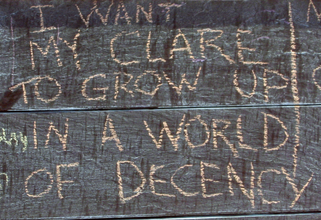 I WANT
MY CLARE
TO GROW UP
IN A WORLD
OF DECENCY